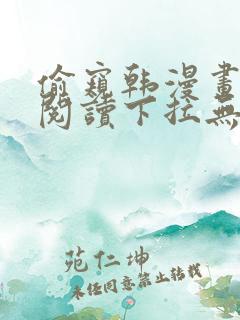 偷窺韩漫畫
閱讀下拉無
苑仁坤
未经同意禁止转载